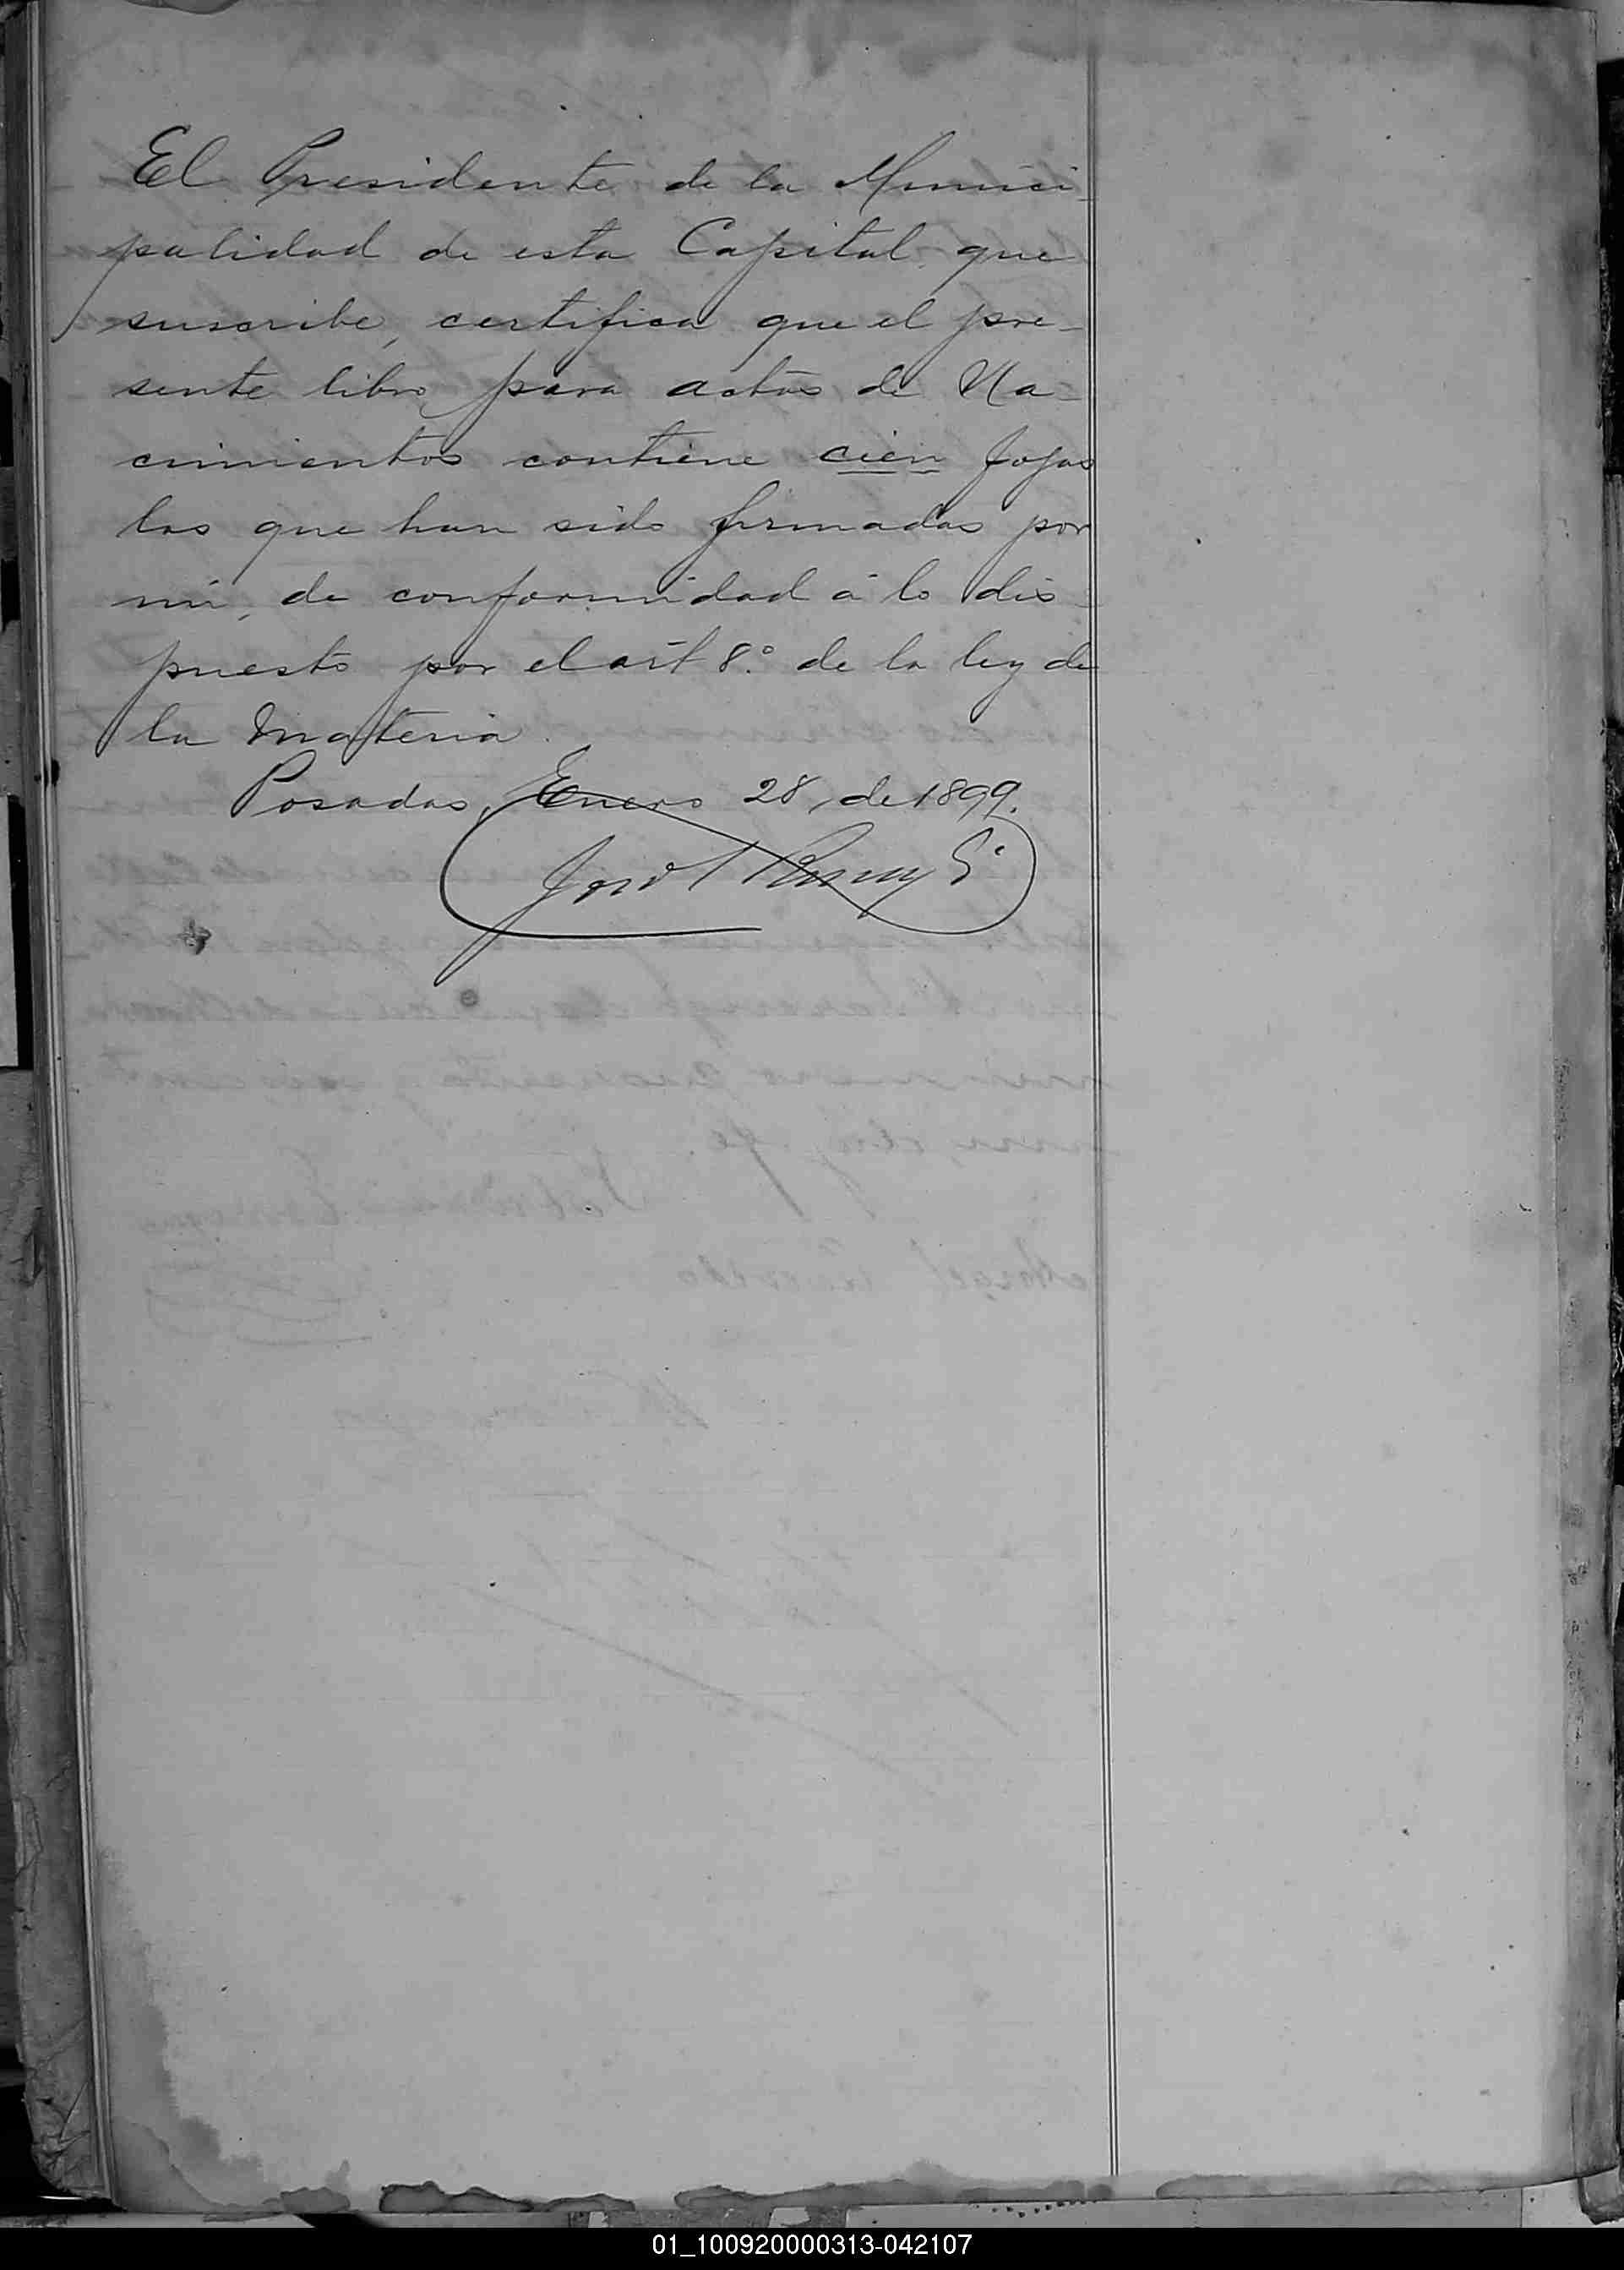 El Presidente de la Munici
palidad de esta Capital que
suscribe, certifica que el pre-
sente libro para actas de Na-
cimientos contiene cien fojas
las que han sido firmadas por
mi, de conformidad á lo dis-
puesto por el art 8.º de la ley de
la materia.
Posadas, Enero 28, de 1899.
01_100920000313-042107